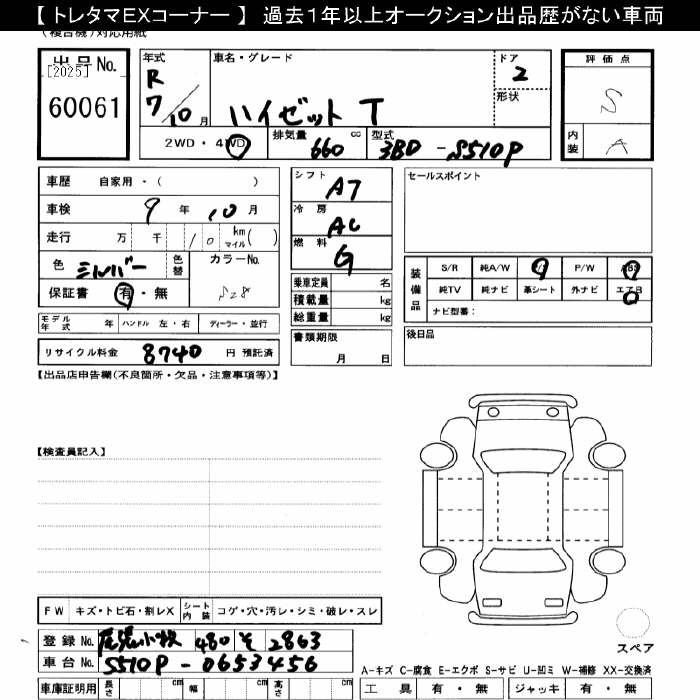 【トレタマEXコーナー】 過去1年以上オークション出品歴がない車両
(複合機)対応用紙
出品No.
[2025]
60061
年式
R
7/10月
車名・グレード
ハイゼット T
ドア
2
形状
評価点
S
内装
A
2WD・4WD
排気量
660 cc
型式
3BD - S510P
車歴 自家用・( )
車検 9年 10月
走行 万 千 10 km マイル( )
色 シルバー
色替
カラーNo.
S28
保証書 有・無
シフト
A7
冷房
AC
燃料
G
乗車定員 名
積載量 kg
総重量 kg
セールスポイント
装備品
S/R 純A/W P/S P/W ABS
純TV 純ナビ 革シート 外ナビ エアB
ナビ型番:
モデル年式 年 ハンドル 左・右 ディーラー・並行
リサイクル料金 8740 円 預託済
書類期限
月 日
後日品
【出品店申告欄(不良箇所・欠品・注意事項等)】
【検査員記入】
FW キズ・トビ石・割レX
シート内装 コゲ・穴・汚レ・シミ・破レ・スレ
登録No. 尾張小牧 480 そ 2863
車台No. S510P-0653456
スペア
A-キズ C-腐食 E-エクボ S-サビ U-凹ミ W-補修 XX-交換済
車庫証明用 長さ cm 幅 cm 高さ cm
工具 有・無 ジャッキ 有・無